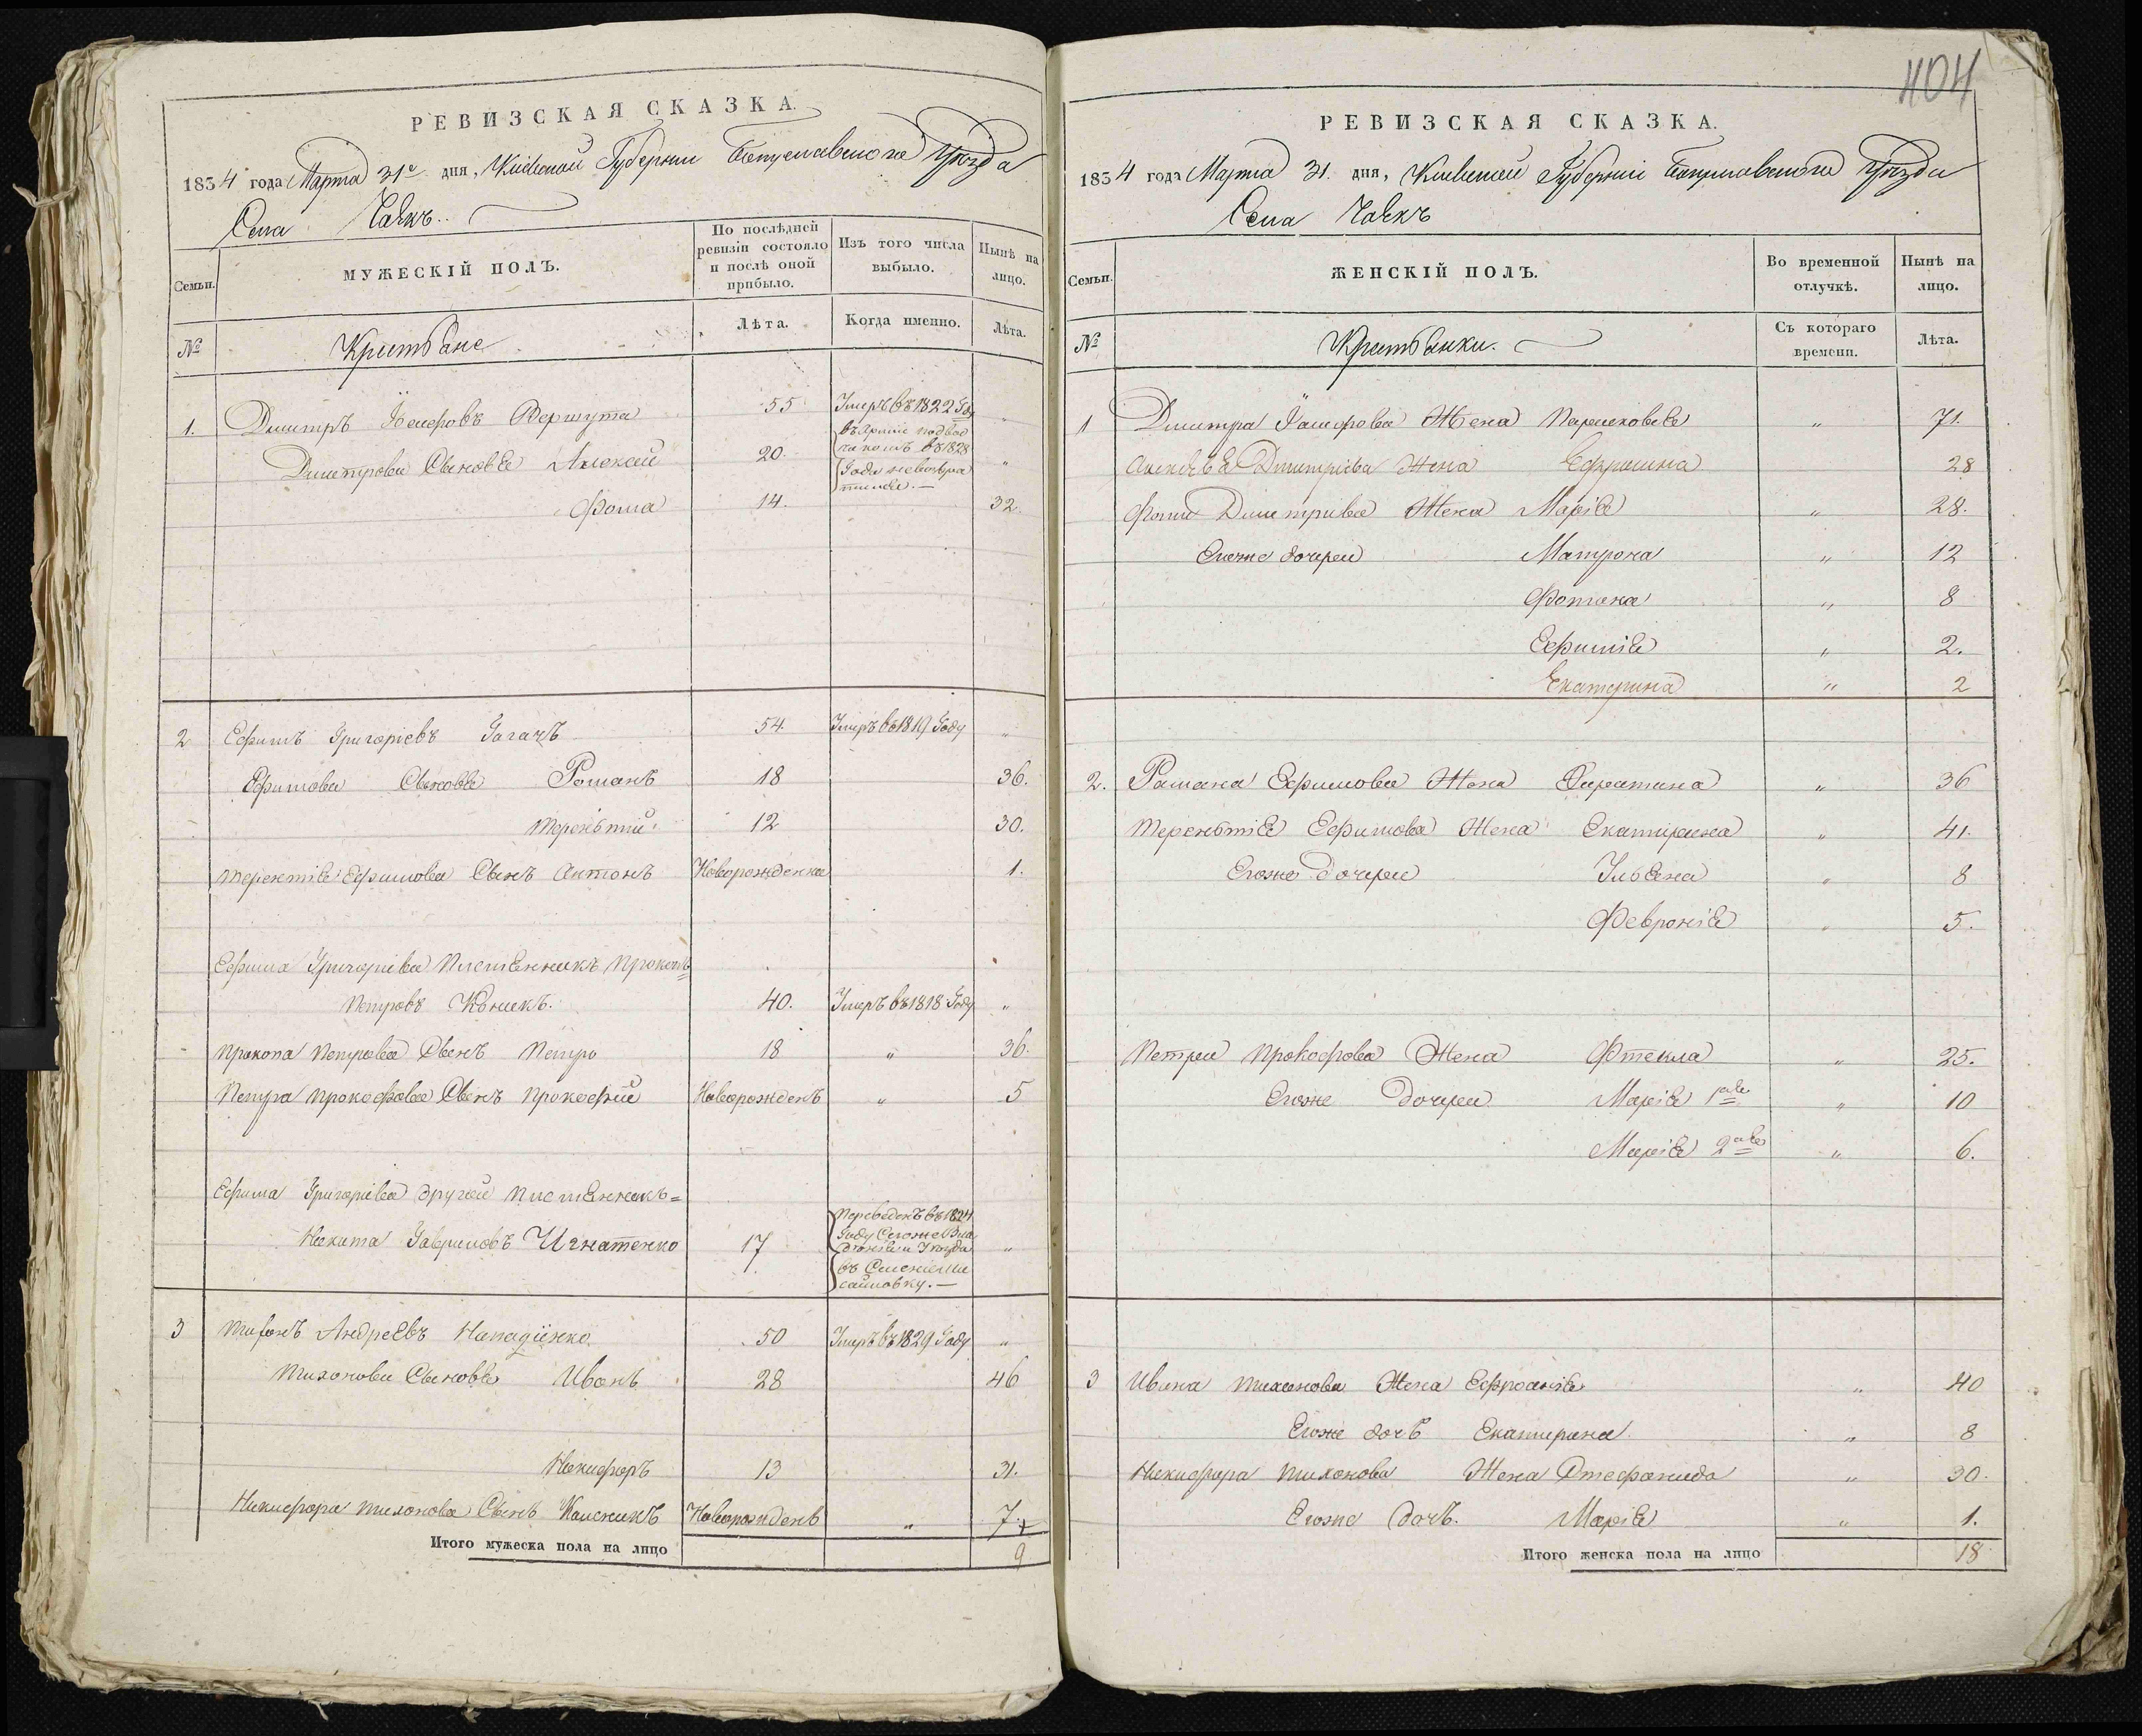 РЕВИЗСКАЯ СКАЗКА.
1834 года Марта 31го дня, Киевской Губернии Богуславского Уезда
Села Чаекъ.
Семьи.
МУЖЕСКІЙ ПОЛЪ.
По послѣдней ревизіи состояло и послѣ оной прибыло.
Изъ того числа выбыло.
Нынѣ на лицо.
№
Крестьяне
Лѣта.
Когда именно.
Лѣта.
1. Дмитръ Вершута 55 Умеръ въ 1822 Году "
Дмитрова Сыновья Алексей 20. въ 1828 Года "
Фома 14. 32.
2 Ефимъ Григоріевъ Гагачъ 54. Умеръ въ 1819 Году "
Ефимова Сыновья Романъ 18 36.
Терентий 12 30.
Терентія Ефимова Сынъ Антонъ Новорожденна 1.
Ефима Григоріева Племянникъ Прокопъ
Петровъ 40. Умеръ въ 1818 Году "
Прокопа Петрова Сынъ Петро 18 " 36.
Петра Прокофова Сынъ Прокофий Новорожденъ " 5
Ефима Григоріева другой Племянникъ=
Никита Гавриловъ Игнатенко 17 Переведенъ въ 1824 Году "
3 Тихонъ Андреевъ 50 Умеръ въ 1829 Году "
Тихонова Сыновья Иванъ 28 46
Никифоръ 13 31.
Никифора Тихонова Сынъ Новорожденъ " 7.
Итого мужеска пола на лицо 9
404
РЕВИЗСКАЯ СКАЗКА.
1834 года Марта 31. дня, Киевской Губерніи Богуславского Уезда
Села Чаекъ
Семьи.
ЖЕНСКІЙ ПОЛЪ.
Во временной отлучкѣ.
Нынѣ на лицо.
№
Крестьянки.
Съ котораго времени.
Лѣта.
1 Дмитра Жена Парасковья " 71.
Алексея Дмитріева Жена Ефросина 28
Фомы Дмитрива Жена Марія " 28.
Егоже дочери Матрона " 12
Фотина " 8
Ефимія " 2.
Екатерина " 2
2. Романа Ефимова Жена " 36
Терентія Ефимова Жена Екатирина " 41.
Егоже дочери Ульяна " 8
Февронія " 5.
Петра Прокофова Жена Фтекла " 25.
Егоже дочери Марія 1ая " 10
Марія 2ая " 6.
3 Ивана Тихонова Жена Ефросинія " 40
Егоже дочь Екатерина. " 8
Никифора Тихонова Жена Стефанида " 30.
Егоже дочь. Марія " 1.
Итого женска пола на лицо 18